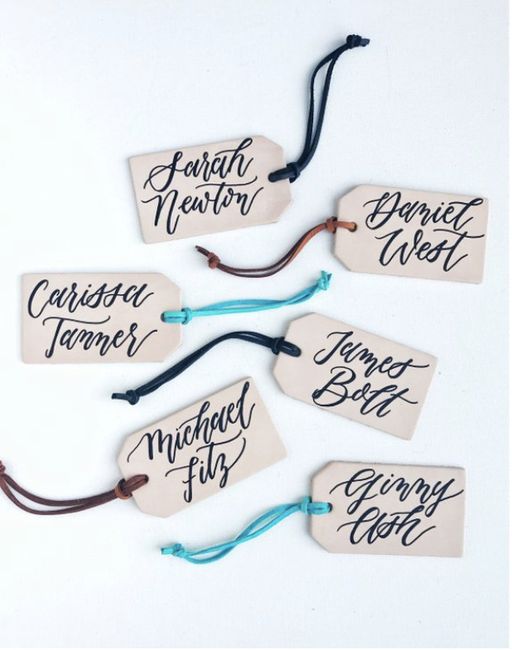 Sarah
Newton
Daniel
West
Carissa
Tanner
James
Bolt
Michael
Fitz
Ginny
Ash